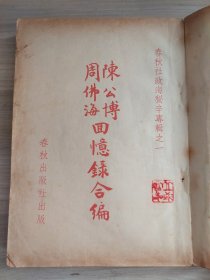 春秋社戰後秘辛專輯之一
陳公博
周佛海
回憶錄合編
春秋出版社出版